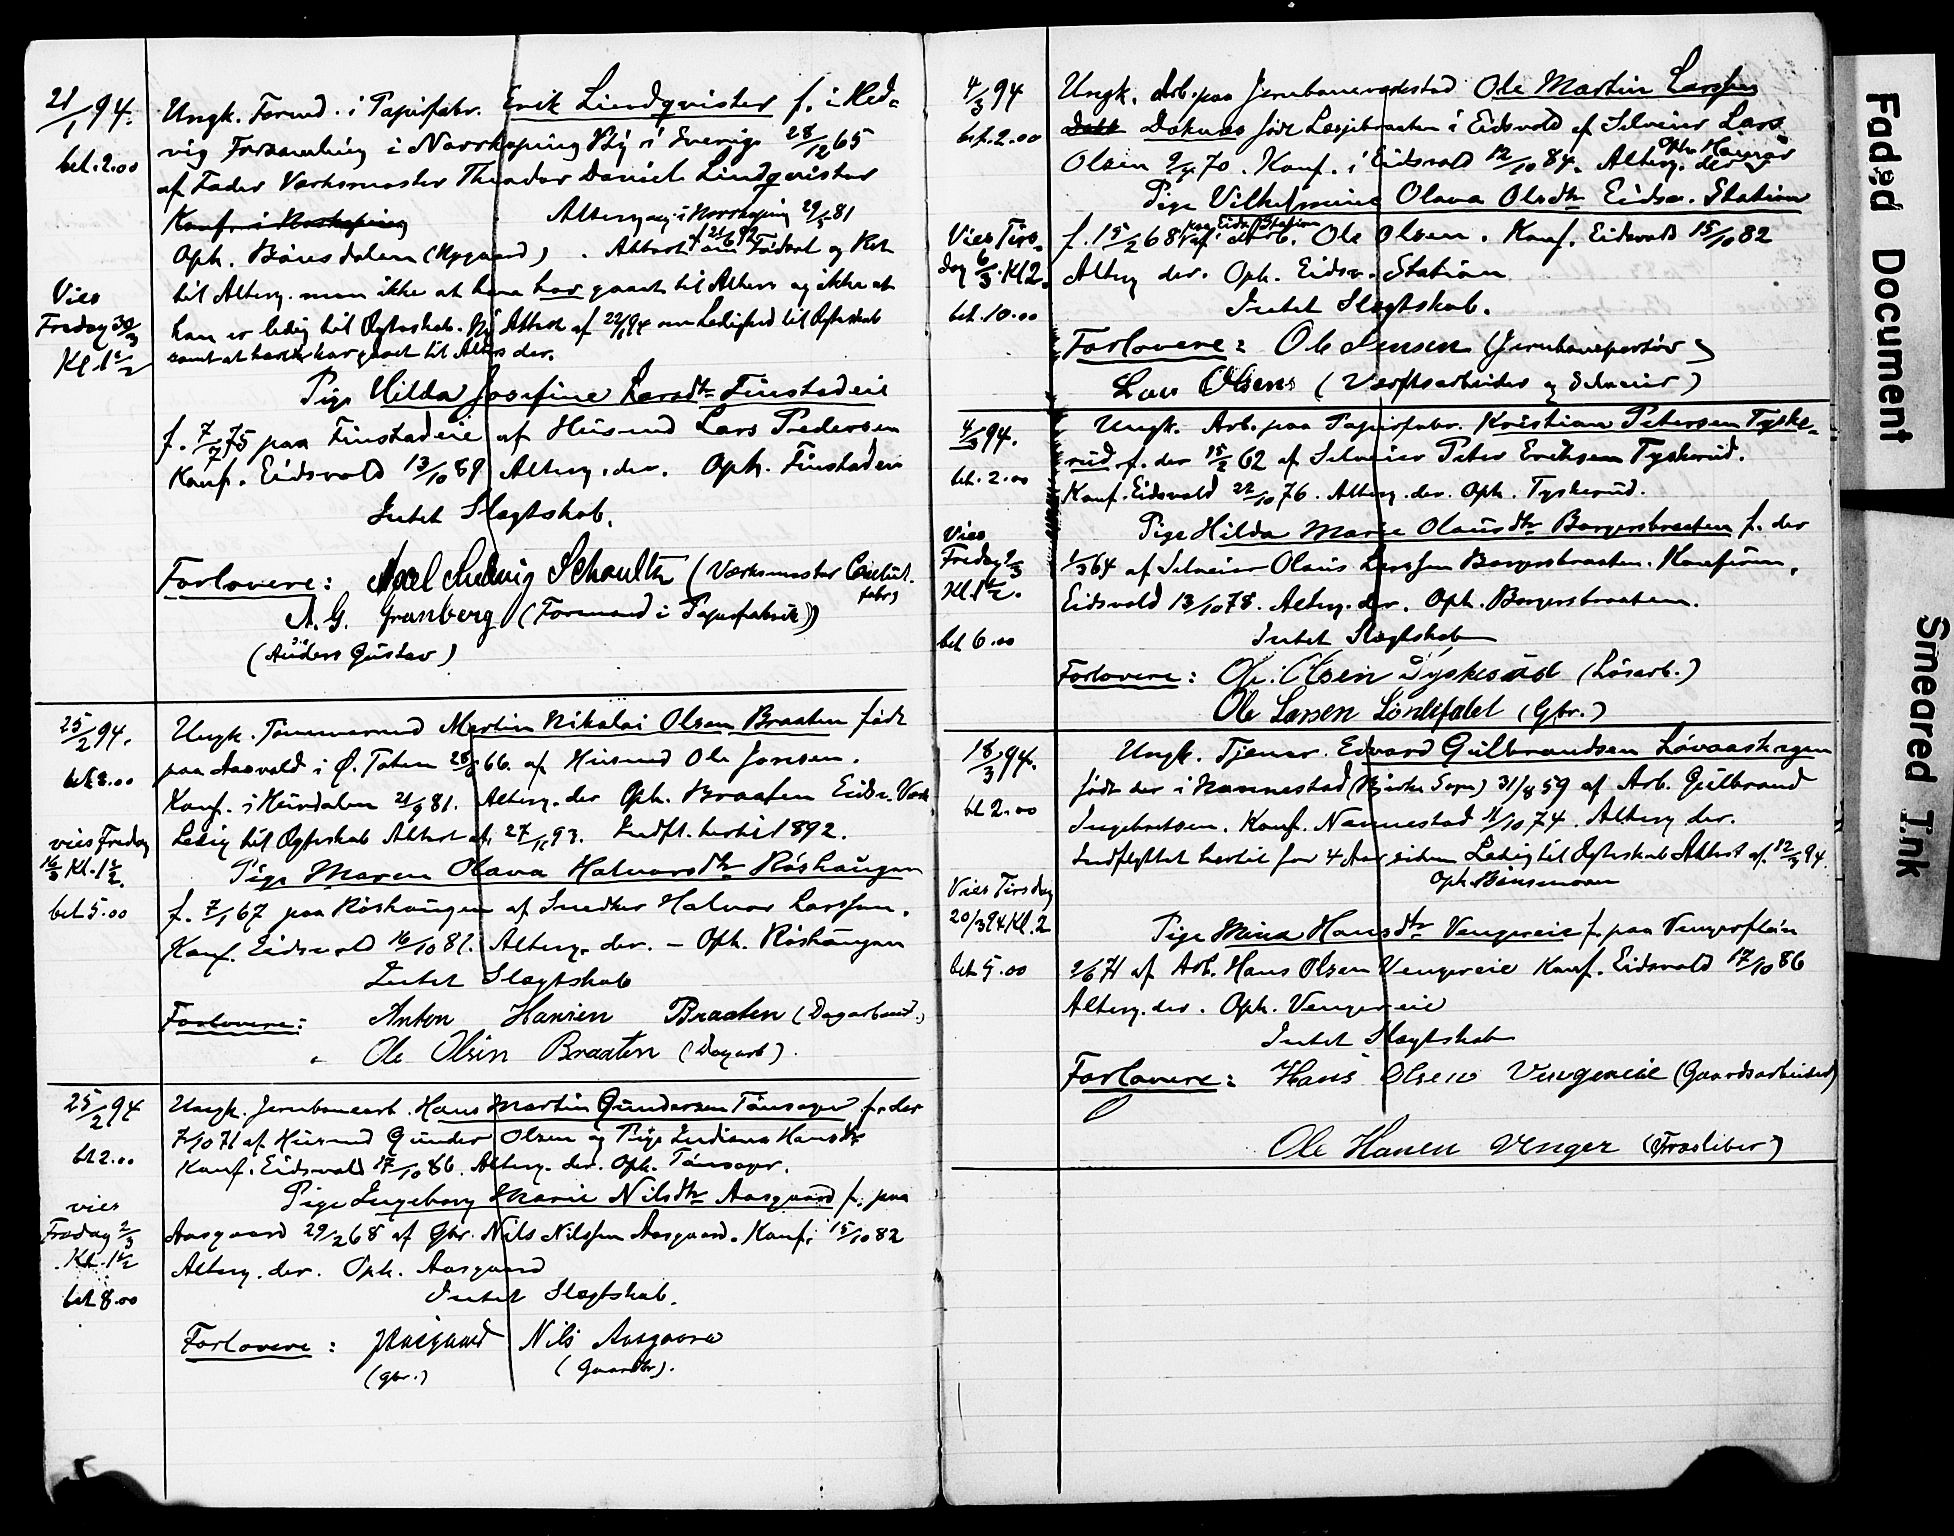 21/1 94.
bet. 2.00
Ungk. Formd. i Papirfabr. Erik Lindqvister f. i Hed-
vig Forsamling i Norrkøping By i Sverige 28/12 65
af Fader Værksmester Theodor Daniel Lindqvister
Konf. i Norrkøping Alterg. i Norrkøping 29/5 81
Oph. Bönsdalen (Nygaard). Attest om Födsel og Ret
til Alterg. men ikke at han har gaaet til Alters og ikke at
han er ledig til Ægteskab. Ny Attest af 22/1 94 om Ledighed til Ægteskab
samt at han har gaaet til Alters der.
Vies
Fredag 30/3
Kl. 1 1/2
Pige Hilda Josefine Larsdtr Finstadeie
f. 7/7 75 paa Finstadeie af Husmd Lars Pedersen
Konf. Eidsvold 13/10 89 Alterg. der. Oph. Finstadeie
Intet Slægtskab.
Forlovere: Axel Ludvig Schoultz (Værksmester
A. G. Granberg (Formand i Papirfabrik)
(Anders Gustav)
25/2 94.
bet 2.00
Ungk. Tömmermd Martin Nikolai Olsen Braaten født
paa Aasvold i Ø. Toten 28/ 66. af Husmd Ole Jonsen.
Konf. i Hurdalen 21/9 81. Alterg. der Oph. Braaten Eidsv. Værk
Ledig til Ægteskab Attest af 27/11 93. Indfl. hertil 1892.
vies Fredag
16/3 Kl. 1 1/2.
bet 5.00
Pige Maren Olava Halvorsdtr Röshaugen
f. 7/1 67 paa Röshaugen af Snedker Halvor Larssen.
Konf. Eidsvold 16/10 81. Alterg. der. – Oph. Röshaugen
Intet Slægtskab
Forlovere: Anton Hansen Braaten (Dagarbeid.)
Ole Olsen Braaten (Dagarb).
25/2 94
bt 2.00
Ungk. Jernbanearb. Hans Martin Gundersen Tönsager f. der
7/10 71 af Husmd Gunder Olsen og Pige Indiana Hansdtr
Konf. Eidsvold 17/10 86. Alterg. der. Oph. Tönsager.
vies
Fredag 2/3
Kl. 1 1/2
bet 8.00
Pige Ingeborg Marie Nilsdtr Aasgaard f. paa
Aasgaard 29/2 68 af Gbr. Nils Nilssen Aasgaard. Konf. 15/10 82
Alterg. der. Oph. Aasgaard
Intet Slægtskab.
Forlovere: Aasgaard Nils Aasgaard
(gbr.) (Gaardbr).
4/3 94
bet. 2.00
Ungk. Arb. paa Jernbaneværksted Ole Martin Larssen
Doknæs født Læsjebraaten i Eidsvold af Selveier Lars
Olsen 9/4 70. Konf. i Eidsvold 12/10 84. Alterg. der
Pige Vilhelmine Olava Olsdtr Eidsv. Station
Vies Tirs-
dag 6/3. Kl 2.
bet. 10.00
f. 15/2 68 paa Eidsv. Station af Arb. Ole Olsen. Konf. Eidsvold 15/10 82
Alterg der. Oph. Eidsv. Station
Intet Slægtskab.
Forlovere: Ole Jensen (Jernbaneportör)
Lars Olsens (Værftsarbeider og Selveier)
4/3 94.
bet. 2.00
Ungk. Arb. paa Papirfabr. Kristian Petersen Tyske-
rud f. der 15/2 62 af Selveier Peter Eriksen Tyskerud.
Konf. Eidsvold 22/10 76. Alterg. der. Oph. Tyskerud.
Vies
Fredag 9/3
Kl. 1 1/2.
bet 6.00
Pige Hilda Marie Olausdtr Borgersbraaten f. der
1/3 64 af Selveier Olaus Larssen Borgersbraaten. Konfirm.
Eidsvold 13/10 78. Alterg. der. Oph. Borgersbraaten.
Intet Slægtskab
Forlovere: Ole Olsen Tyskerud (Lösarb.)
Ole Larsen Löndefalet (Gbr.)
18/3 94.
bet 2.00
Ungk. Tjener. Edvard Gulbrandsen Lövaashagen
født der i Nannestad (Bjerke Sogn) 31/8 59 af Arb. Gulbrand
Ingebretsen. Konf. Nannestad 11/10 74. Alterg der.
Indflyttet hertil for 4 Aar siden Ledig til Ægteskab Attest af 12/3 94.
Oph. Bönsmoen
Vies Tirsdag
20/3 94 Kl. 2
bet 5.00
Pige Mina Hansdtr Vengereie f. paa Vengerflön
2/6 71 af Arb. Hans Olsen Vengereie Konf. Eidsvold 17/10 86
Alterg. der. Oph. Vengereie
Intet Slægtskab
Forlovere: Hans Olsen Vengereie (Gaardsarbeider)
Ole Hansen Venger (Træsliber)
Faded Document
Smeared Ink